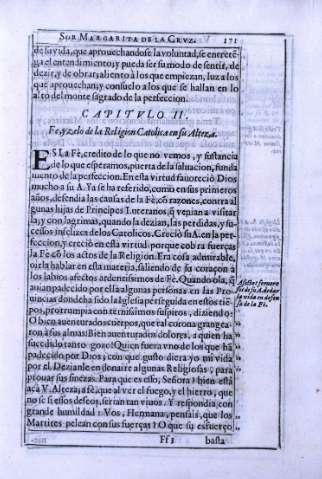 SOR MARGARITA DE LA CRVZ. 171
de su vida, que aprouechandose la voluntad, se entretẽ-
ga el entendimiento; y pueda ser su modo de sentir, de
dezir, y de obrar, aliento à los que empieçan, luz a los
que aprouechan, y consuelo a los que se hallan en lo
alto del monte sagrado de la perfeccion.
CAPITVLO II.
Fe, y zelo de la Religion Catolica en su Alteza.
ES La Fè, credito de lo que no vemos, y sustancia
de lo que esperamos, puerta de la saluacion, funda
mento de la perfeccion. En esta virtud fauoreciò Dios
mucho a su A. Ya se ha referido, como en sus primeros
años, defendia las causas de la Fè, cõ razones, contra al
gunas hijas de Principes Luteranos, q̃ venian a visitar
la, y con lagrimas, quando la dezian, las perdidas, y su-
cessos infelices de los Catolicos. Creciò su A. en la per-
feccion, y creciò en esta virtud, porque cobra fuerças
la Fè cõ los actos de la Religion. Era cosa admirable,
oirla hablar en esta materia, saliendo de su coraçon à
los labios afectos ardentissimos de Fè. Quando oìa, q̃
auian padecido por ella algunas personas en las Pro
uincias donde ha sido la Iglesia perseguida en estos tiẽ-
pos, prorrumpia con ternissimos suspiros, diziendo:
O bien auenturados cuerpos, que tal corona grangea-
ron à sus almas! Bien auenturados dolores, a quien ha
sucedido tanto gozo! Quien fuera vno de los que hã
padecido por Dios; con que gusto diera yo mi vida
por el. Dezianle en donaire algunas Religiosas; para
prouar sus finezas. Para que es esso, Señora? bien està
acà V. Alteza, a fè, que al ver el fuego, y el hierro, que
no se si essos deseos, serian tan viuos. Y respondia, con
grande humildad: Vos, Hermana, pensais, que los
Martires pelean con sus fuerças? O que su esfuerço
Ff 3 basta
Afectos feruoro
sos de su A. de dar
la vida en defen
sa de la Fè.